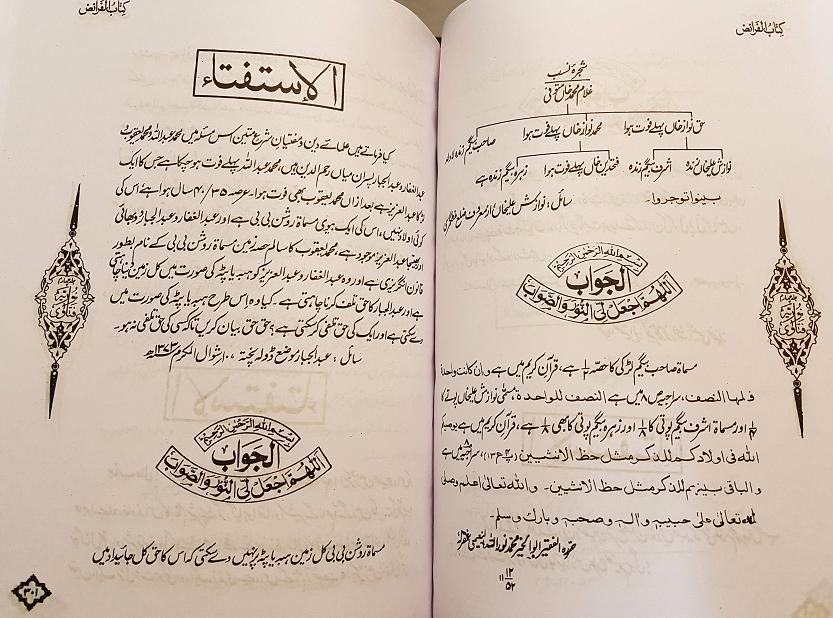 کتاب الفرائض
شجرۂ نسب
غلام محمد خاں متوفی
حق نواز خاں پہلے فوت ہوا
محمد نواز خاں پہلے فوت ہوا
صاحب بیگم زندہ
نوازش علیخاں زندہ
اشرف بیگم زندہ
خاں پہلے فوت ہوا
زہرہ بیگم زندہ ہے
بینوا توجروا۔ سائل: نوازش علیخاں از معروف ضلع منٹگمری
بسم اللہ الرحمٰن الرحیم
الجواب
اللھم اجعل لی النور والصواب
مسماۃ صاحب بیگم لڑکی کا حصّہ ½ ہے، قرآن کریم میں ہے وان کانت واحدۃ
فلہا النصف، سراجیہ ص ۸ میں ہے النصف للواحدۃ، مسمّی نوازش علیخاں پوتے کا
اور مسماۃ اشرف بیگم پوتی کا ⅛ اور زہرہ بیگم پوتی کا بھی ⅛ ہے، قرآن کریم میں ہے یوصیکم
اللہ فی اولادکم للذکر مثل حظ الانثیین سراجیہ ص ۸ میں ہے
والباقی بینہم للذکر مثل حظ الانثیین۔ واللہ تعالیٰ اعلم وصلی
اللہ تعالیٰ علیٰ حبیبہ والہ وصحبہ وبارک وسلم۔
حررہ الفقیر ابوالخیر محمد نور اللہ النعیمی غفرلہٗ
۱۱ ۱۲/۵۲
فتاویٰ نوریہ
کتاب الفرائض
الاستفتاء
کیا فرماتے ہیں علمائے دین و مفتیانِ شرع متین اس مسئلہ میں محمد عبداللہ و محمد یعقوب و
عبدالغفار و عبدالجبار پسران میاں رحیم الدین ہیں، محمد عبداللہ پہلے فوت ہو چکا ہے جس کا ایک
لڑکا عبدالعزیز ہے بعد ازاں محمد یعقوب بھی فوت ہوا۔ عرصہ ۳۵/۴۰ سال ہوا ہے اس کی
کوئی اولاد نہیں، اس کی ایک بیوی مسماۃ روشن بی بی ہے اور عبدالغفار و عبدالجبار دو بھائی
اور بھتیجا عبدالعزیز موجود ہے، محمد یعقوب کا سالم حصہ زمین مسماۃ روشن بی بی کے نام بطور
قانون انگریزی ہے اور وہ عبدالغفار و عبدالعزیز کو ہبہ یا پٹہ کی صورت میں کل زمین دینا چاہتی
ہے اور عبدالجبار کا حق تلف کرنا چاہتی ہے۔ کیا وہ اس طرح ہبہ یا پٹہ کی صورت میں
دے سکتی ہے اور ایک کی حق تلفی کر سکتی ہے؟ حق حق بیان کریں تاکہ کسی کی حق تلفی نہ ہو۔
سائل: عبدالجبار موضع ڈولہ پختہ ۱۰ شوال المکرم ۱۳۷۳ھ
بسم اللہ الرحمٰن الرحیم
الجواب
اللھم اجعل لی النور والصواب
مسماۃ روشن بی بی کل زمین ہبہ یا پٹہ پر نہیں دے سکتی کہ اس کا حق کل جائیداد میں
فتاویٰ نوریہ
۳۰۱